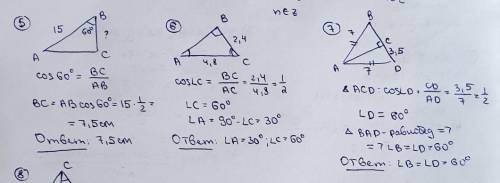 нез
5
B
15
60°
?
A
C
cos60° = BC/AB
BC = AB cos60° = 15 · 1/2 =
= 7,5 cm
Ответ: 7,5 cm
6
B
2,4
A
C
4,8
cos∠C = BC/AC = 2,4/4,8 = 1/2
∠C = 60°
∠A = 90° - ∠C = 30°
Ответ: ∠A = 30°; ∠C = 60°
7
B
7
C
3,5
A
7
D
△ ACD: cos∠D = CD/AD = 3,5/7 = 1/2
∠D = 60°
△ BAD - равнобед =>
=> ∠B = ∠D = 60°
Ответ: ∠B = ∠D = 60°
8
C